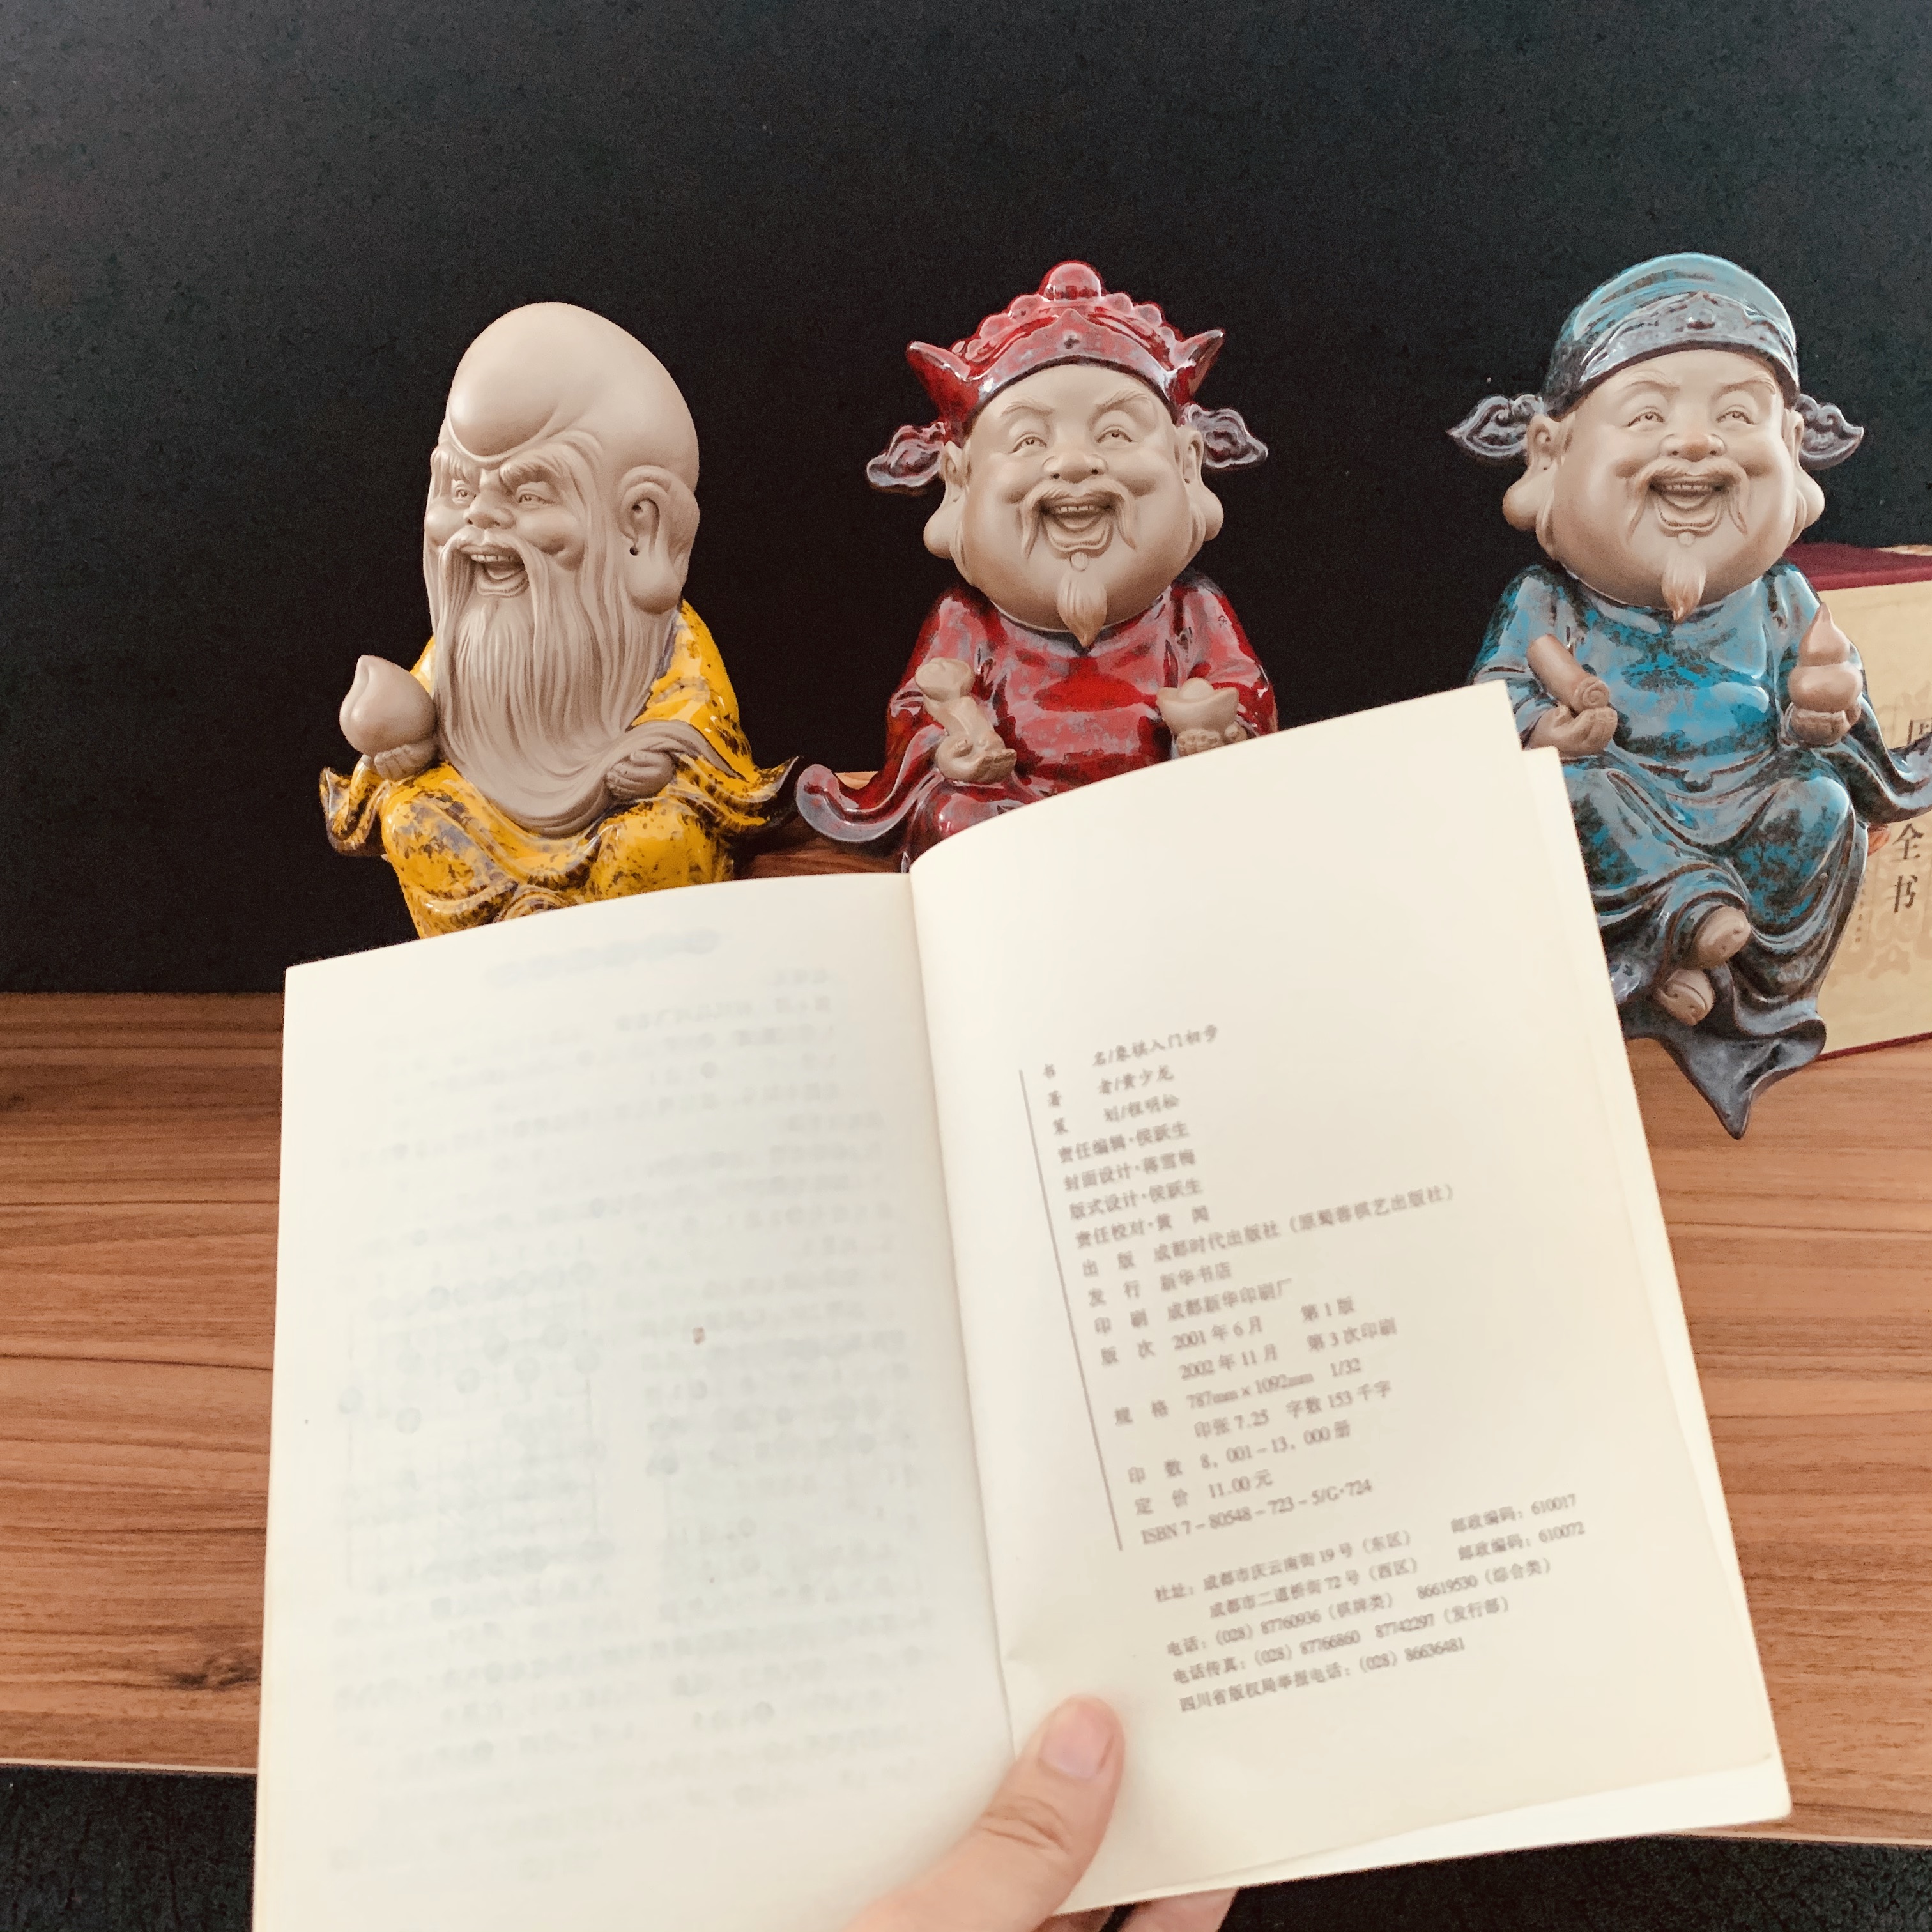 书 名/象棋入门初步
著 者/黄少龙
策 划/程明松
责任编辑·侯跃生
封面设计·蒋雪梅
版式设计·侯跃生
责任校对·黄 闻
出 版 成都时代出版社（原蜀蓉棋艺出版社）
发 行 新华书店
印 刷 成都新华印刷厂
版 次 2001 年 6 月 第 1 版
2002 年 11 月 第 3 次印刷
规 格 787mm×1092mm 1/32
印张 7.25 字数 153 千字
印 数 8，001－13，000 册
定 价 11.00 元
ISBN 7－80548－723－5/G·724
社址：成都市庆云南街 19 号（东区） 邮政编码：610017
成都市二道桥街 72 号（西区） 邮政编码：610072
电话：（028）87760936（棋牌类） 86619530（综合类）
电话传真：（028）87766860 87742297（发行部）
四川省版权局举报电话：（028）86636481
全书